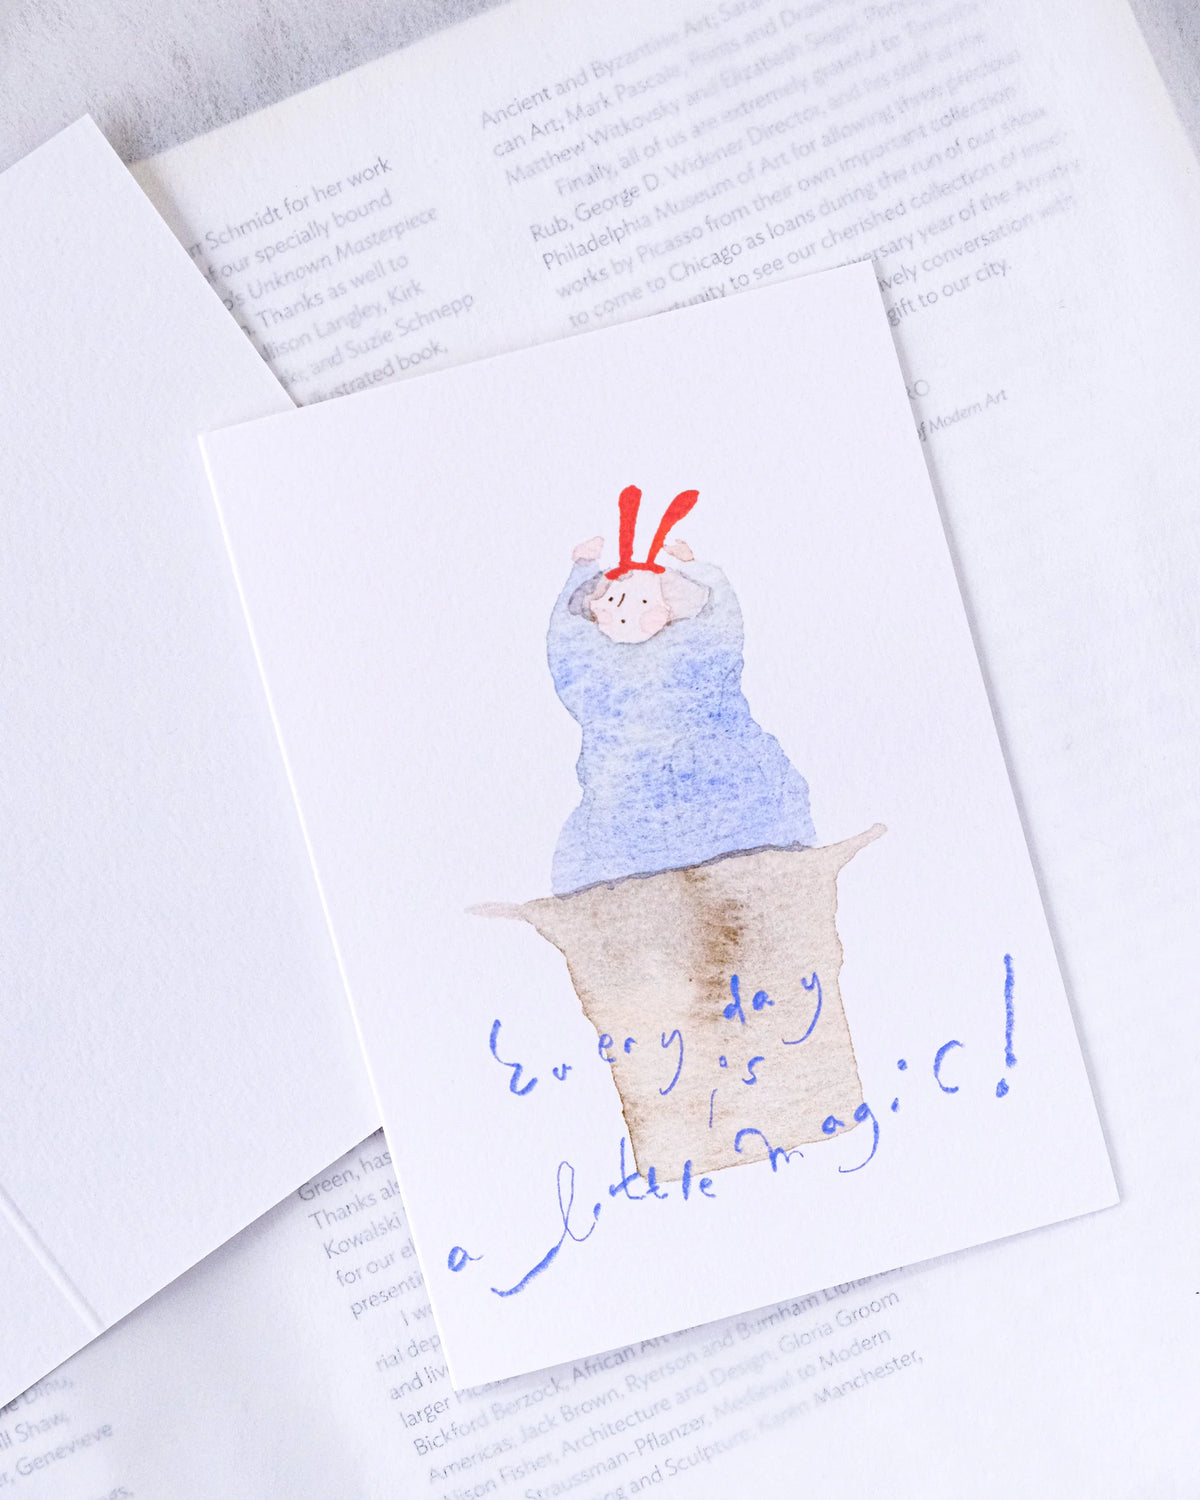 Ancient and Byzantine Art; Sarah
can Art; Mark Pascale, Prints and Drawings
Matthew Witkovsky and Elizabeth Siegel, Photo
Finally, all of us are extremely grateful to Timothy
Rub, George D. Widener Director, and his staff at the
Philadelphia Museum of Art for allowing three precious
works by Picasso from their own important collection
to come to Chicago as loans during the run of our show.
opportunity to see our cherished collection of
versary year of the Armory
ively conversation with
gift to our city.
RO
of Modern Art
Schmidt for her work
of our specially bound
's Unknown Masterpiece
Thanks as well to
llison Langley, Kirk
and Suzie Schnepp
illustrated book,
Every day
is
a little magic!
Green, has
Thanks als
Kowalski
for our el
presenti
I wo
rial dep
and liv
larger
Bickford Berzock, African Art
Americas; Jack Brown, Ryerson and Burnham Libraries;
Alison Fisher, Architecture and Design; Gloria Groom
Straussman-Pflanzer, Medieval to Modern
ing and Sculpture; Karen Manchester,
ll Shaw,
r, Genevieve
ngs,